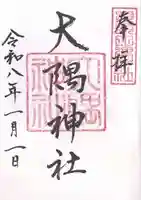 奉拝
大隅神社
令和八年一月一日